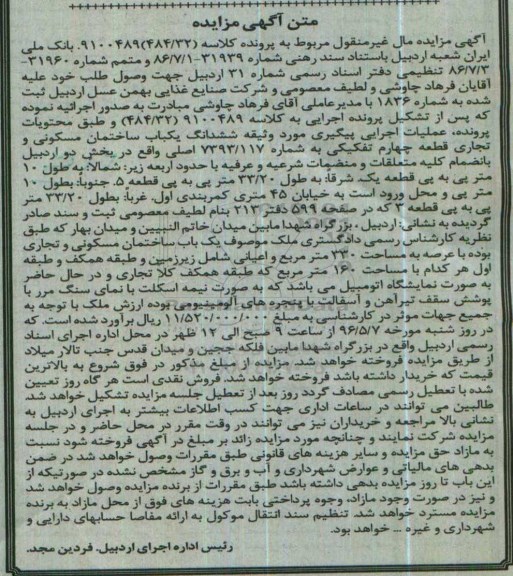 متن آگهی مزایده
آگهی مزایده مال غیرمنقول مربوط به پرونده کلاسه (۴۸۴/۳۲)۹۱۰۰۴۸۹. بانک ملی
ایران شعبه اردبیل باستناد سند رهنی شماره ۳۱۹۳۹-۸۶/۷/۱ و متمم شماره ۳۱۹۶۰-
۸۶/۷/۳ تنظیمی دفتر اسناد رسمی شماره ۳۱ اردبیل جهت وصول طلب خود علیه
آقایان فرهاد چاوشی و لطیف معصومی و شرکت صنایع غذایی بهمن عسل اردبیل ثبت
شده به شماره ۱۸۳۶ با مدیرعاملی آقای فرهاد چاوشی مبادرت به صدور اجرائیه نموده
که پس از تشکیل پرونده اجرایی به کلاسه ۹۱۰۰۴۸۹ (۴۸۴/۳۲) و طبق محتویات
پرونده، عملیات اجرایی پیگیری مورد وثیقه ششدانگ یکباب ساختمان مسکونی و
تجاری قطعه چهارم تفکیکی به شماره ۷۳۹۳/۱۱۷ اصلی واقع در بخش دو اردبیل
بانضمام کلیه متعلقات و منضمات شرعیه و عرفیه با حدود اربعه زیر: شمالا: به طول ۱۰
متر پی به پی قطعه یک، شرقا: به طول ۳۳/۲۰ متر پی به پی قطعه ۵. جنوبا: بطول ۱۰
متر پی و محل ورود است به خیابان ۴۵ متری کمربندی اول، غربا: بطول ۳۳/۲۰ متر
پی به پی قطعه ۳ که در صفحه ۵۹۹ دفتر ۲۱۳ بنام لطیف معصومی ثبت و سند صادر
گردیده به نشانی: اردبیل، بزرگراه شهدا مابین میدان خاتم النبیین و میدان بهار که طبق
نظریه کارشناس رسمی دادگستری ملک موصوف یک باب ساختمان مسکونی و تجاری
بوده با عرصه به مساحت ۳۳۰ متر مربع و اعیانی شامل زیرزمین و طبقه همکف و طبقه
اول هر کدام با مساحت ۱۶۰ متر مربع که طبقه همکف کلا تجاری و در حال حاضر
به صورت نمایشگاه اتومبیل می باشد که به صورت نیمه اسکلت با نمای سنگ مرر با
پوشش سقف تیرآهن و آسفالت با پنجره های آلومینیومی بوده ارزش ملک با توجه به
جمیع جهات موثر در کارشناسی به مبلغ ۱۱/۵۲۰/۰۰۰/۰۰۰ ریال برآورد شده است. که
در روز شنبه مورخه ۹۶/۵/۷ از ساعت ۹ صبح الی ۱۲ ظهر در محل اداره اجرای اسناد
رسمی اردبیل واقع در بزرگراه شهدا مابین فلکه ججین و میدان قدس جنب تالار میلاد
از طریق مزایده فروخته خواهد شد. مزایده از مبلغ مذکور در فوق شروع به بالاترین
قیمت که خریدار داشته باشد فروخته خواهد شد. فروش نقدی است هر گاه روز تعیین
شده با تعطیل رسمی مصادف گردد روز بعد از تعطیل جلسه مزایده تشکیل خواهد شد.
طالبین می توانند در ساعات اداری جهت کسب اطلاعات بیشتر به اجرای اردبیل به
نشانی بالا مراجعه و خریداران نیز می توانند در وقت مقرر در محل حاضر و در جلسه
مزایده شرکت نمایند و چنانچه مورد مزایده زائد بر مبلغ در آگهی فروخته شود نسبت
به مازاد حق مزایده و سایر هزینه های قانونی طبق مقررات وصول خواهد شد در ضمن
بدهی های مالیاتی و عوارض شهرداری و آب و برق و گاز مشخص نشده در صورتیکه از
این باب تا روز مزایده بدهی داشته باشد طبق مقررات از برنده مزایده وصول خواهد شد
و نیز در صورت وجود مازاد، وجوه پرداختی بابت هزینه های فوق از محل مازاد به برنده
مزایده مسترد خواهد شد. تنظیم سند انتقال موکول به ارائه مفاصا حسابهای دارایی و
شهرداری و غیره ... خواهد بود.
رئیس اداره اجرای اردبیل. فردین مجد.